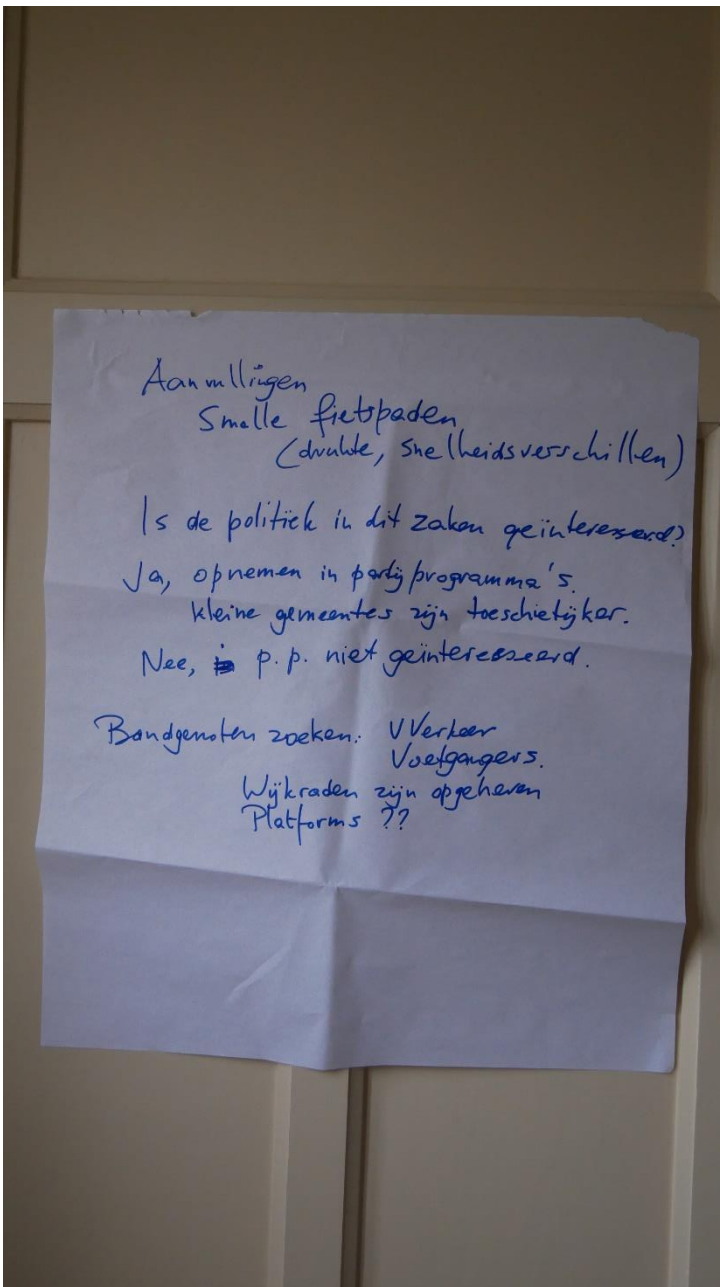 Aanvullingen
Smalle fietspaden
(drukte, snelheidsverschillen)
Is de politiek in dit zaken geïnteresseerd?
Ja, opnemen in partijprogramma's.
kleine gemeentes zijn toeschietijker.
Nee, p.p. niet geïnteresseerd.
Bondgenoten zoeken: VVerkeer
Voetgangers.
Wijkraden zijn opgeheven
Platforms ??